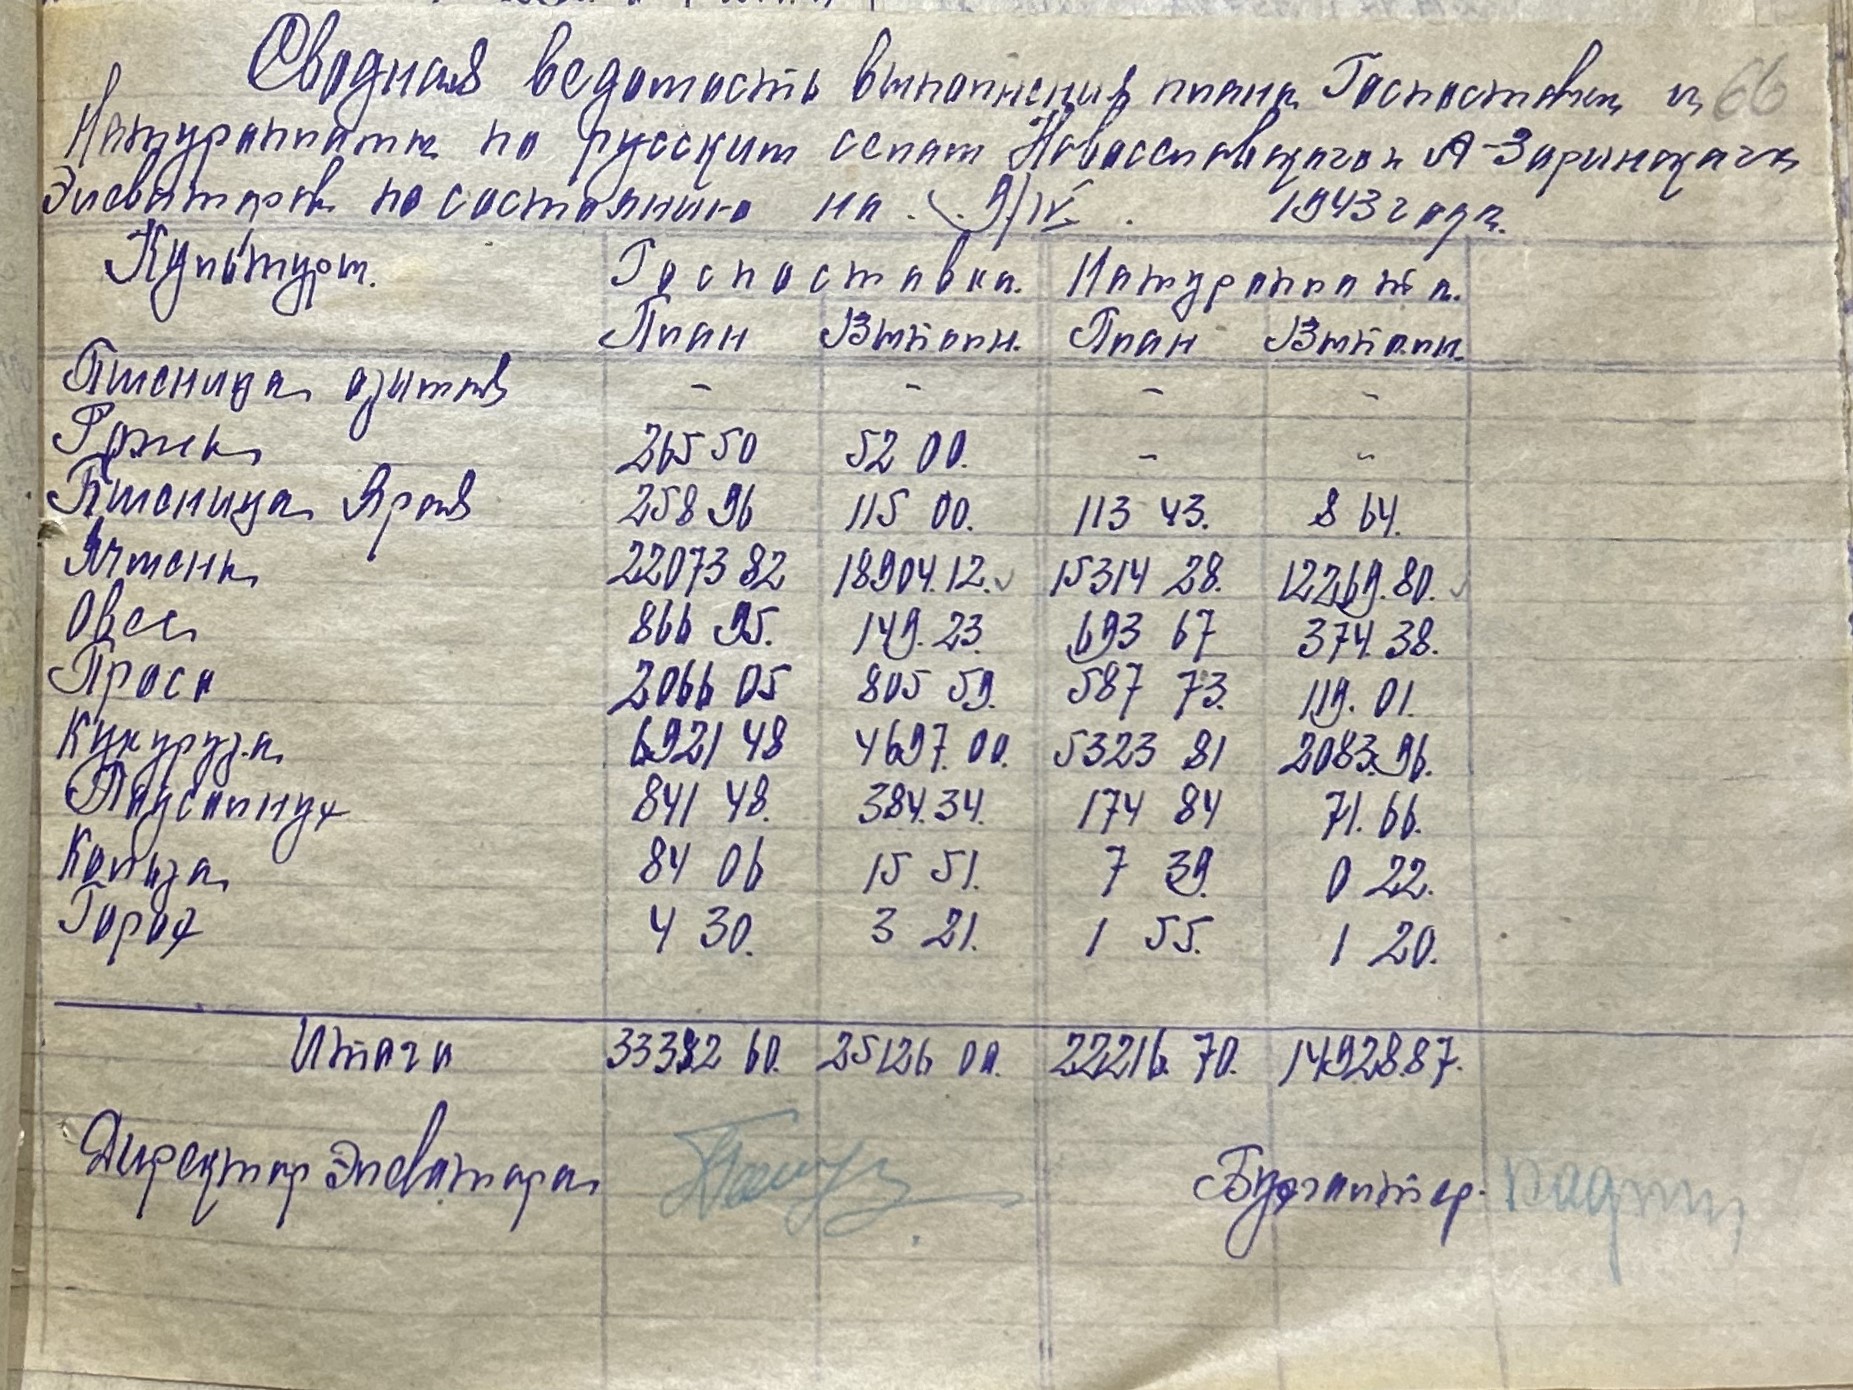 66
Сводная ведомость выполнения плана Госпоставки и
Натуроплаты по русским селам Новоселовского и А-Заринского
Элеваторов по состоянию на 9/IV 1943 года.
Культуры. Госпоставка. Натуроплата.
План Выполн. План Выполн.
Пшеница озимая - - - -
Рожь 265 50 52 00. - -
Пшеница Яров 258 96 115 00. 113 43. 8 64.
Ячмень 22073 82 18904.12. 15314 28. 12269.80.
Овес 866 95. 149.23. 693 67 374.38.
Просо 2066 05 805 59. 587 73. 119.01.
Кукуруза 6921 48 4697.00. 5323 81 2083.96.
Подсолнух 841 48. 384.34. 174 84 71.66.
Кользa 84 06 15 51. 7 39. 0 22.
Горох 4 30. 3 21. 1 55. 1 20.
Итого 33382 60. 25126 00. 22216. 70. 14928.87.
Директор Элеватора Бухгалтер.